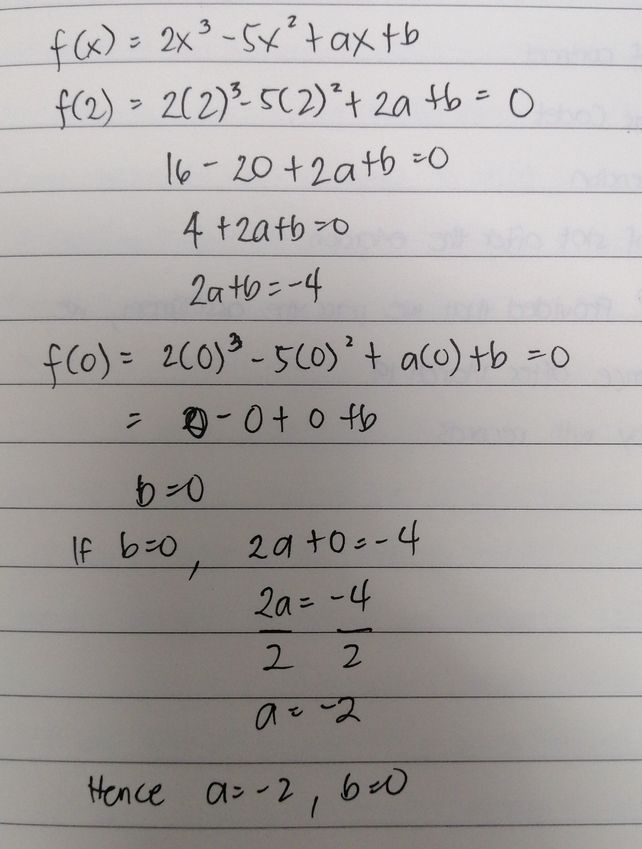 f(x) = 2x³ - 5x² + ax + b
f(2) = 2(2)³ - 5(2)² + 2a + b = 0
16 - 20 + 2a + b = 0
4 + 2a + b = 0
2a + b = -4
f(0) = 2(0)³ - 5(0)² + a(0) + b = 0
= 0 - 0 + 0 + b
b = 0
If b = 0, 2a + 0 = -4
2a = -4
2 2
a = -2
Hence a = -2, b = 0